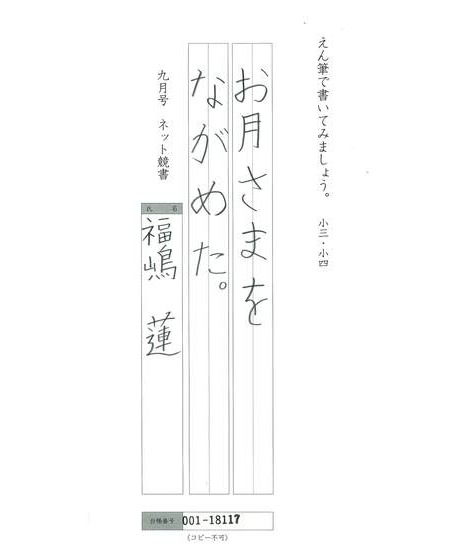 えん筆で書いてみましょう。 小三・小四
お月さまを
ながめた。
九月号 ネット競書
氏 名
福嶋 蓮
台帳番号 001-18117
(コピー不可)